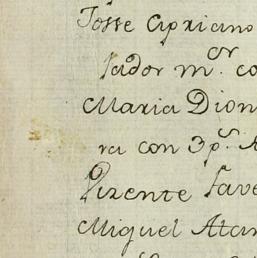 Josse Cipriano
Jador m.or co
Maria Dion
ra con 3 p.s A
Vizente Fave
Miguel Atan